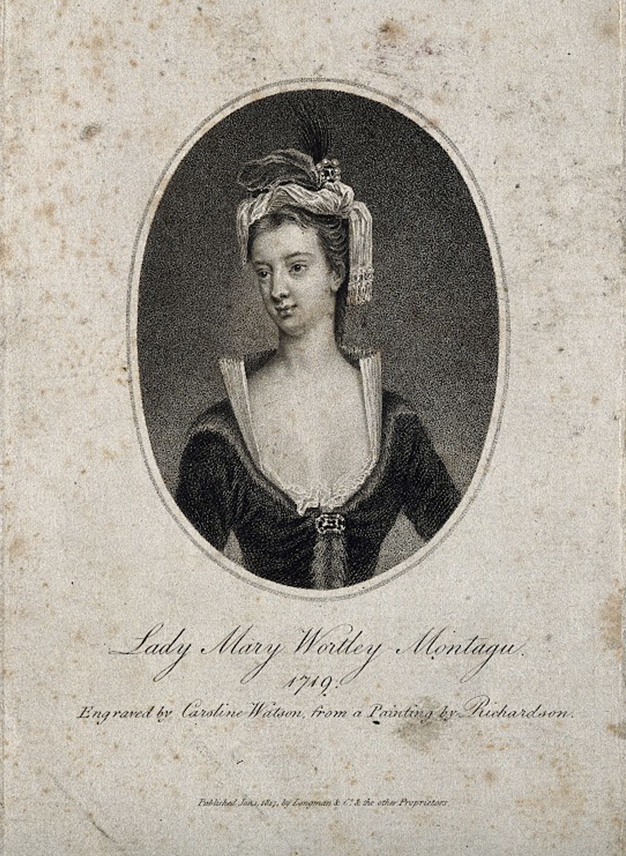 Lady Mary Wortley Montagu.
1719.
Engraved by Caroline Watson, from a Painting by Richardson.
Published by Longman & Co. & the other Proprietors